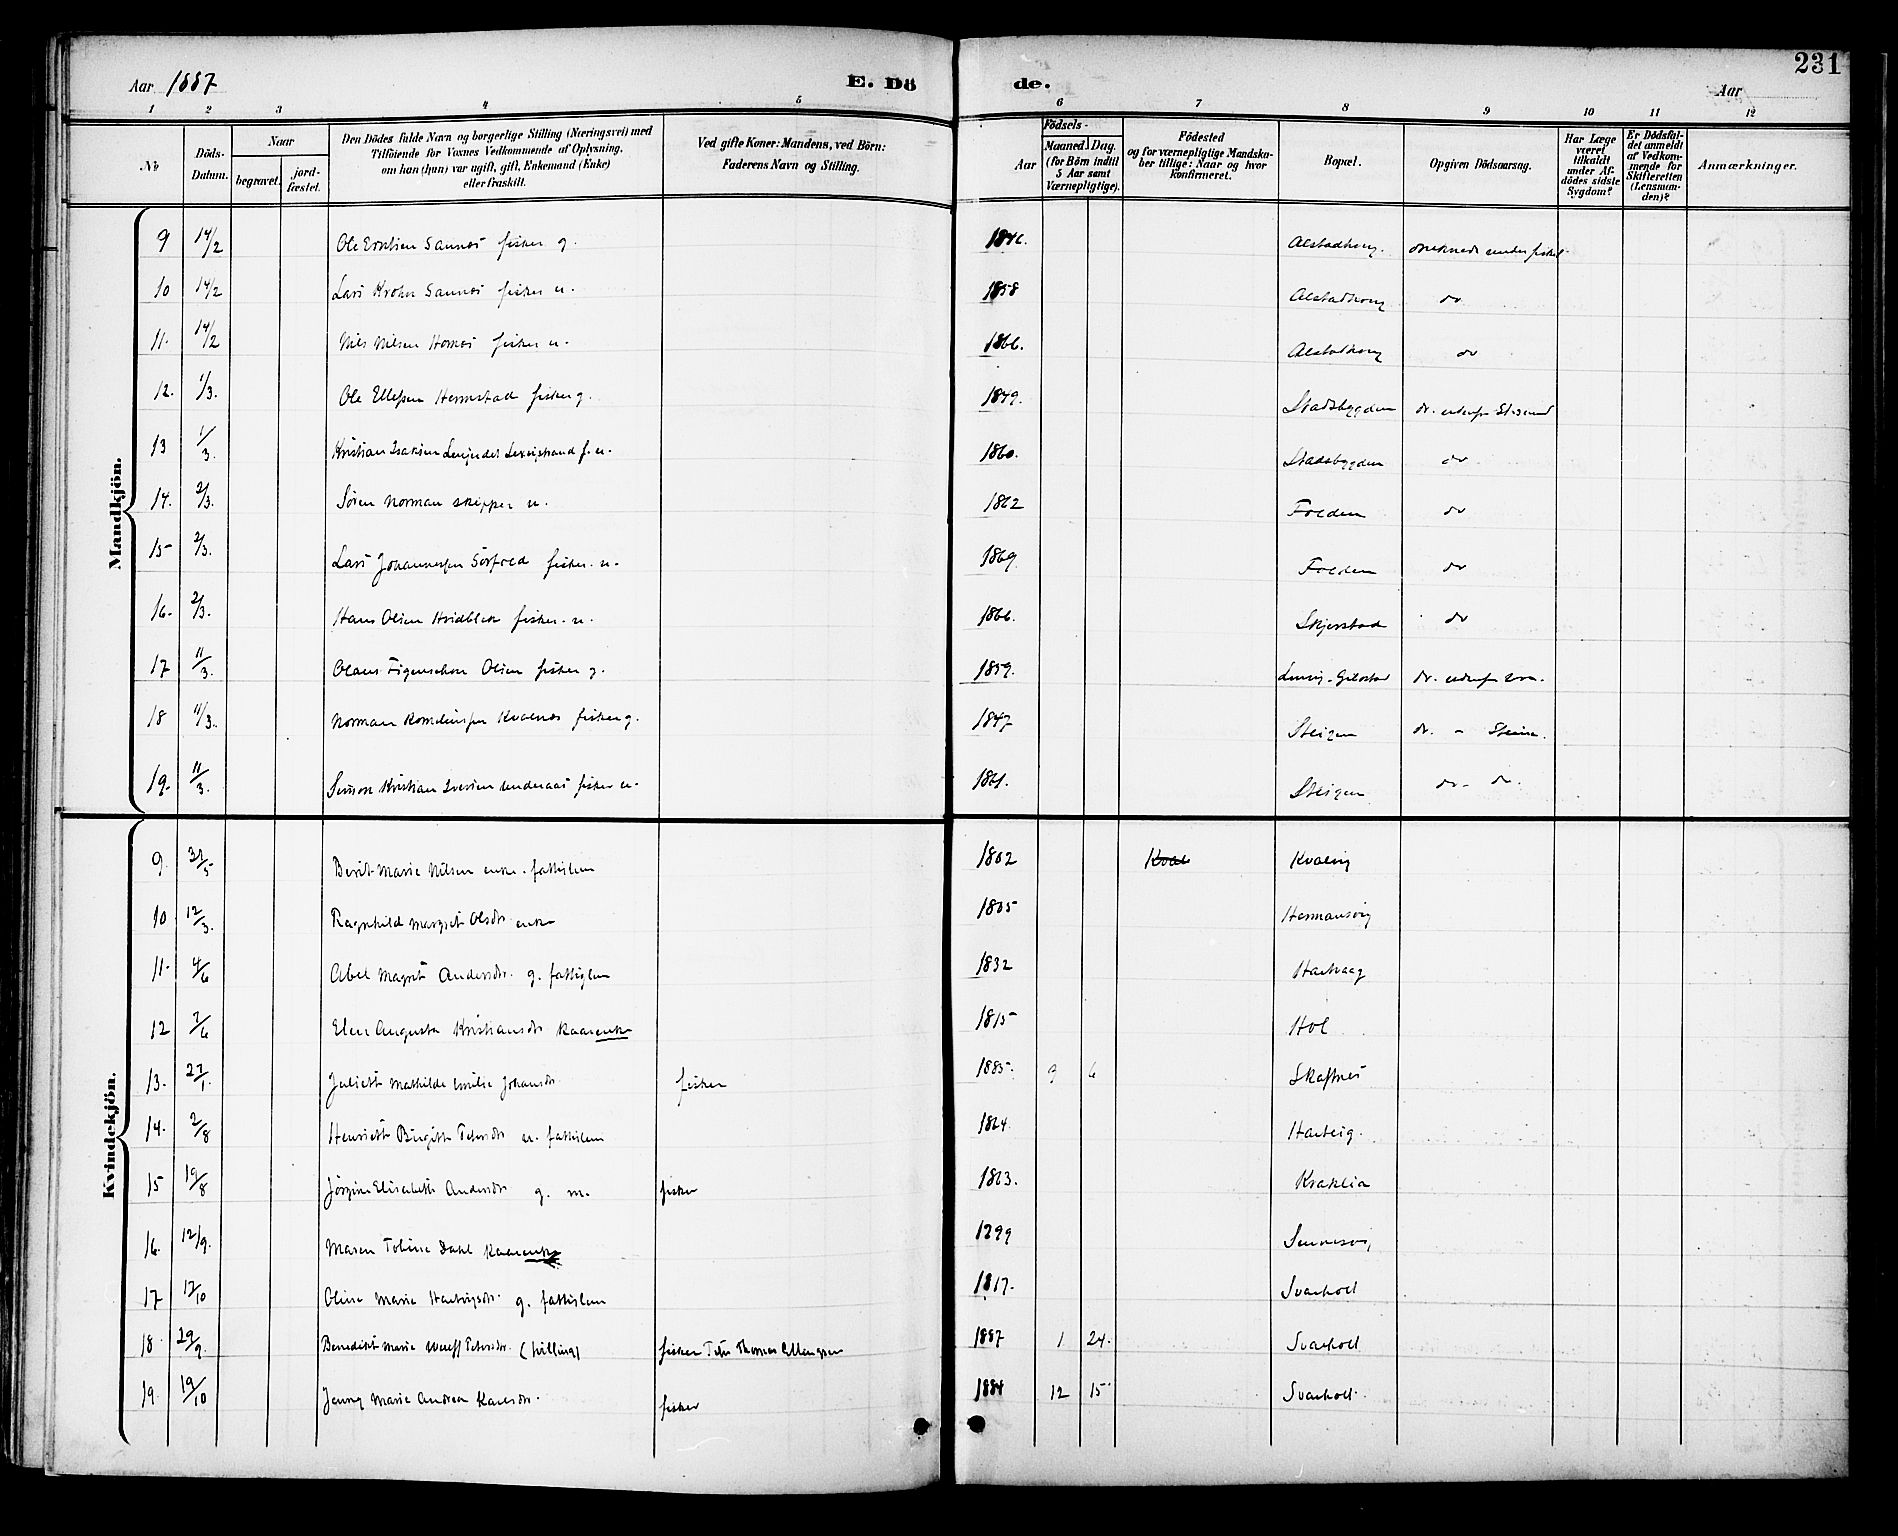 231
Aar 1887 E. Dö de. Aar
1 2 3 4 5 6 7 8 9 10 11 12
No.
Döds-Datum.
Naar
begravet.
jord-fæstet.
Den Dödes fulde Navn og borgerlige Stilling (Næringsvei) med
Tilföiende for Voxnes Vedkommende af Oplysning,
om han (hun) var ugift, gift, Enkemand (Enke)
eller fraskilt.
Ved gifte Koner: Mandens, ved Börn:
Faderens Navn og Stilling.
Födsels-
Aar
Maaned Dag.
(for Börn indtil
5 Aar samt
Værnepligtige).
Födested
og for værnepligtige Mandska-
ber tillige: Naar og hvor
konfirmeret.
Bopæl.
Opgiven Dödsaarsag.
Har Læge
været
tilkaldt
under Af-
dödes sidste
Sygdom?
Er Dödsfal-
det anmeldt
af Vedkom-
mende for
Skifteretten
(Lensman-
den)?
Anmærkninger.
Mandkjön.
9 14/2 Ole Sannes fisker g. 1846. Alstadhoug. druknede under fiskeri
10 14/2 Lars Krohn Sannes fisker u. 1858 Alstadhoug do
11. 14/2 Nils Nilsen fisker u. 1866. Alstadhoug do
12. 1/3. Ole Ellefsen Hermstad fisker g. 1849. Stadsbygden do.
13 1/3. Kristian Isaksen f. u. 1860. Stadsbygden do
14. 2/3. Søren Norman skipper u. 1862 Folden do
15 2/3. Lars Johannessen Sørfold fisker. u. 1869 Folden do
16. 2/3. Hans Olsen fisker. u. 1866. Skjerstad do
17 11/3. Olaus Figenschou Olsen fisker g. 1859. do.
18 11/3. Norman Kvalnes fisker g. 1847 Steigen do. -
19. 11/3. Kristian Iversen fisker u. 1861. Steigen do - do.
Kvindekjön.
9. Berit Marie Nilsen enke. fattiglem 1802 Kval Kvalvig
10 12/3. Ragnhild Margret Olsdr. enke 1805 Hermansvig
11. 4/6 Abel Magret Andersdr. g. fattiglem 1832
12 7/6 Elen Augusta Kristiansdr kaarenke 1815 Hol
13. 27/1. Juliette Mathilde Emilie Johansdr. fisker 1885. 9 6 Skaftnes
14. 2/8 Henriette Birgitte Petersdr u. fattiglem 1864.
15 19/8 Jørgine Elisabeth Andersdr g. m. fisker 1863. Kraklia
16. 12/9. Maren Tobine Dahl Kaarenke
17 17/10 Oline Marie Hartvigsdr. g. fattiglem 1817. Svarholt
18. 29/9. Benedikte Marie Wulff Petersdr. (tvilling) fisker Peter Thomas Ellingsen 1887 1 24. Svarholt
19. 19/10 Jenny Marie Andrea Karlsdr. fisker 1884 12 15 Svarholt.